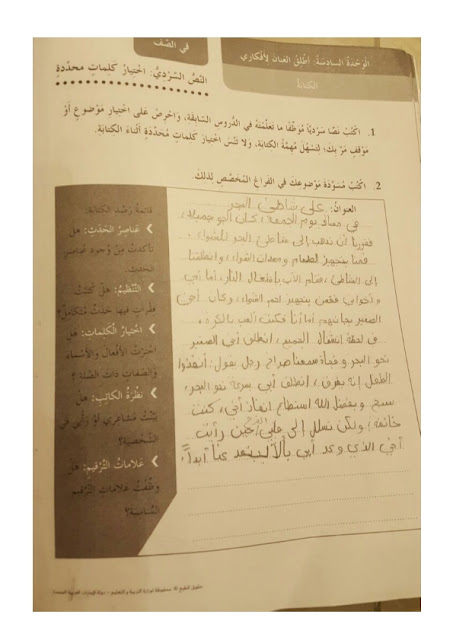 في الصّف
الْوَحْدَةُ السّادِسَةُ: أُطْلِقُ الْعَنانَ لِأَفْكاري
الكِتابَةُ
النَّصُّ السَّرْدِيُّ: اخْتِيارُ كَلِماتٍ مُحَدَّدَةٍ
1. اكْتُبْ نَصًّا سَرْدِيًّا مُوَظِّفًا ما تَعَلَّمْتَهُ في الدُّروسِ السّابِقَةِ، وَاحْرِصْ عَلى اخْتِيارِ مَوْضوعٍ أَوْ
مَوْقِفٍ مَرَّ بِكَ؛ لِتَسْهُلَ مُهِمَّةُ الكِتابَةِ، وَلا تَنْسَ اخْتِيارَ كَلِماتٍ مُحَدَّدَةٍ أَثْناءَ الْكِتابَةِ.
2. اكْتُبْ مُسْوَدَّةَ مَوْضوعِكَ في الفَراغِ الْمُخَصَّصِ لِذلِكَ.
العنوان: على شاطئ البحر
في مساء يوم الجمعة، كان الجو جميلا،
فقررنا أن نذهب إلى شاطئ البحر للشواء،
قمنا بتجهيز الطعام ومعدات الشواء، وانطلقنا
إلى الشاطئ، فقام الأب بإشعال النار، أما أمي
و أخواتي فقمن بتجهيز لحم الشواء، وكان أخي
الصغير بجانبهم أما أنا فكنت ألعب بالكرة،
في لحظة انشغال الجميع، انطلق أخي الصغير
نحو البحر و فجأة سمعنا صراخ رجل يقول: أنقذوا
الطفل إنه يغرق، انطلق أبي بسرعة نحو البحر،
سبح وبفضل الله استطاع انقاذ أخي، كنت
خائفة، ولكن تسلل إلى قلبي حين رأيت
أخي الذي وعد أبي بألا يبتعد عنا أبدا.
قائِمَةُ رَصْدِ الكِتابَةِ:
عَناصِرُ الحَدَثِ: هَلْ
تَأَكَّدْتُ مِنْ وُجودِ عَناصِرِ
الحَدَثِ.
التَّنْظيمُ: هَلْ كَتَبْتُ
فِقْراتٍ فيها حَدَثٌ مُتَكامِلٌ؟
اخْتِيارُ الْكَلِماتِ: هَلِ
اخْتَرْتُ الْأَفْعالَ وَالْأَسْماءَ
وَالصِّفاتِ ذاتَ الصِّلَةِ؟
نَظْرَةُ الكاتِبِ: هَلْ
بَيَّنْتُ مَشاعِري أَوْ رَأْيي في
الشَّخْصِيَّةِ؟
عَلاماتُ التَّرْقيمِ: هَلْ
وَظَّفْتُ عَلاماتِ التَّرْقيمِ
الْمُناسِبَةَ؟
حقوق الطبع © محفوظة لوزارة التربية والتعليم - دولة الإمارات العربية المتحدة